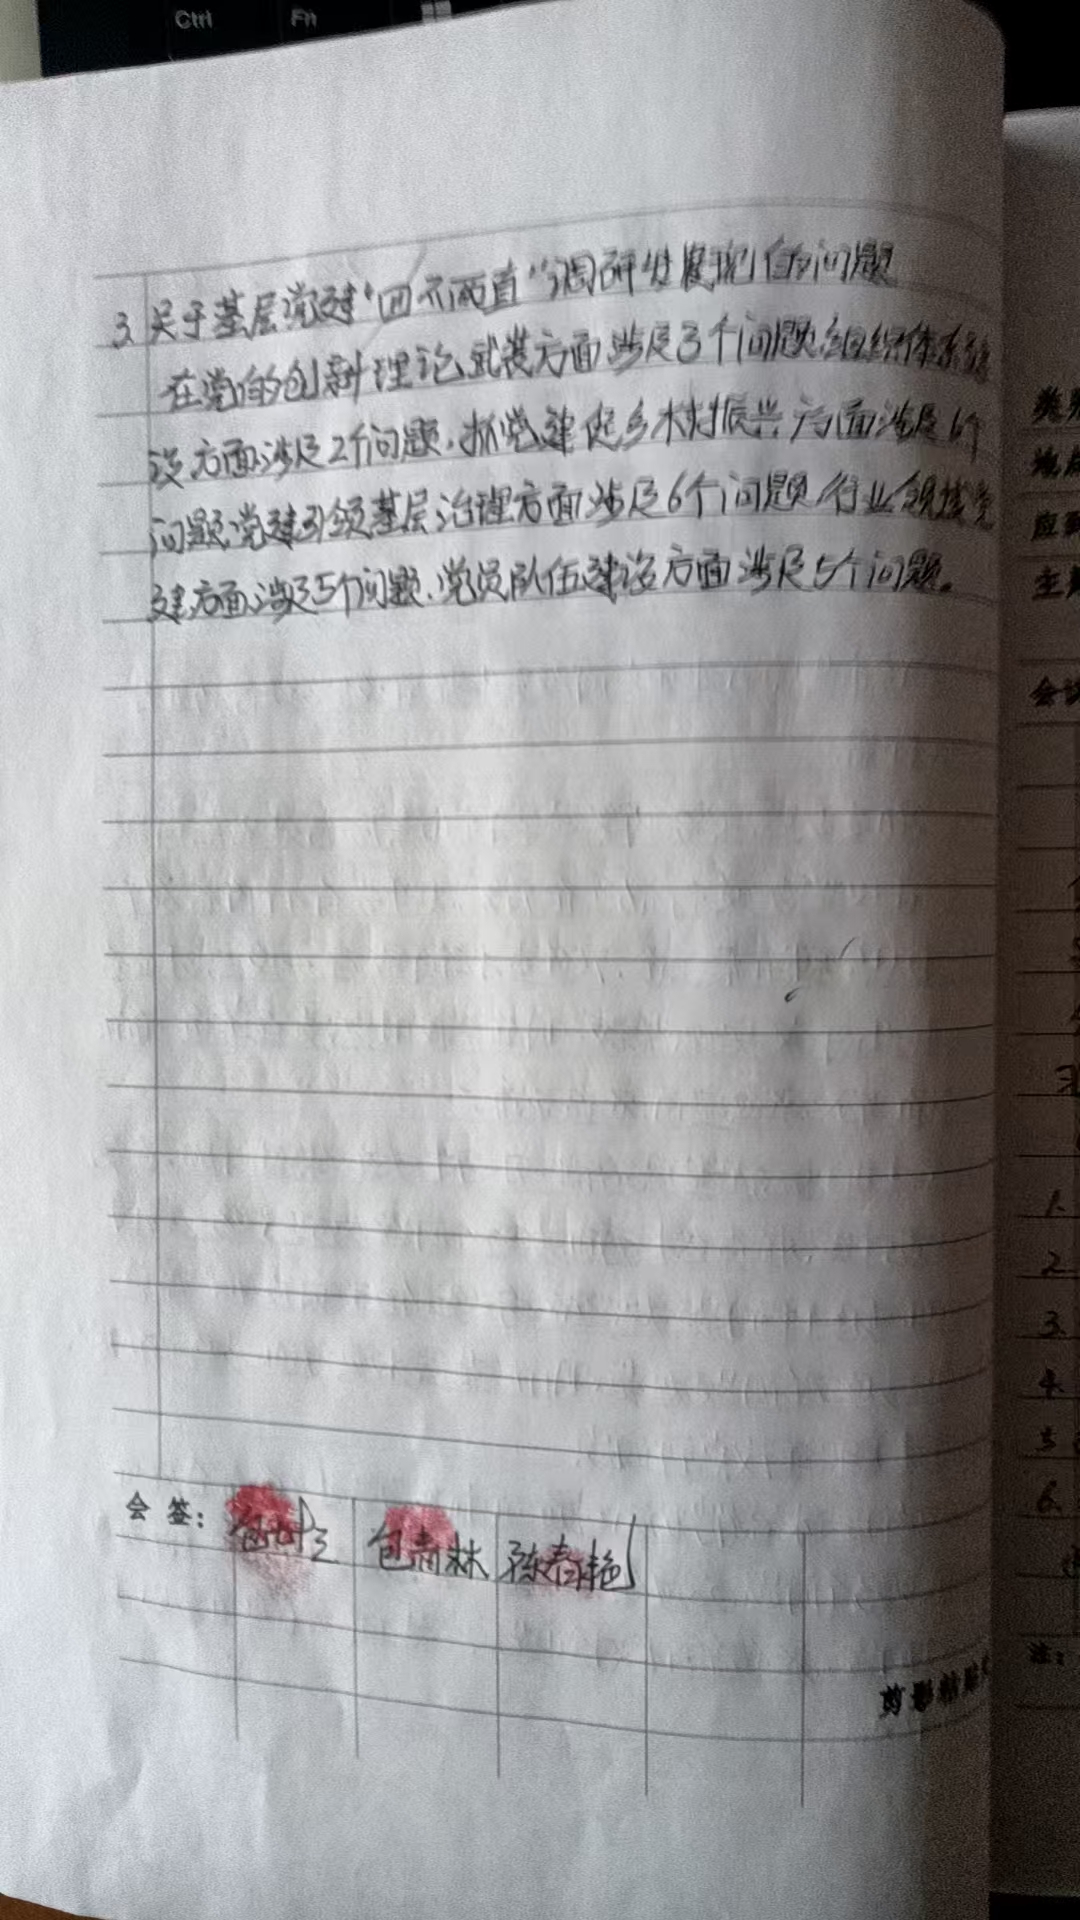 Ctrl
Fn
3.关于基层党建“四不两直”调研发展现的问题
在党的创新理论武装方面涉及3个问题,组织体系建
设方面涉及2个问题,抓党建促乡村振兴方面涉及6个
问题,党建引领基层治理方面涉及6个问题,行业领域党
建方面涉及5个问题,党员队伍建设方面涉及5个问题。
会签:
包青林
陈春艳
剪影粘贴
类别
地点
应到
主
会议
1.
2.
3.
4.
5
6.
注: